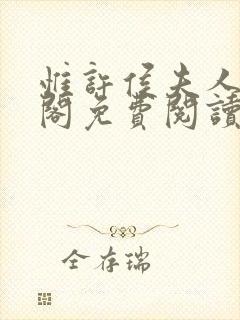 惟許侯夫人
閣免費閱讀
全存瑞